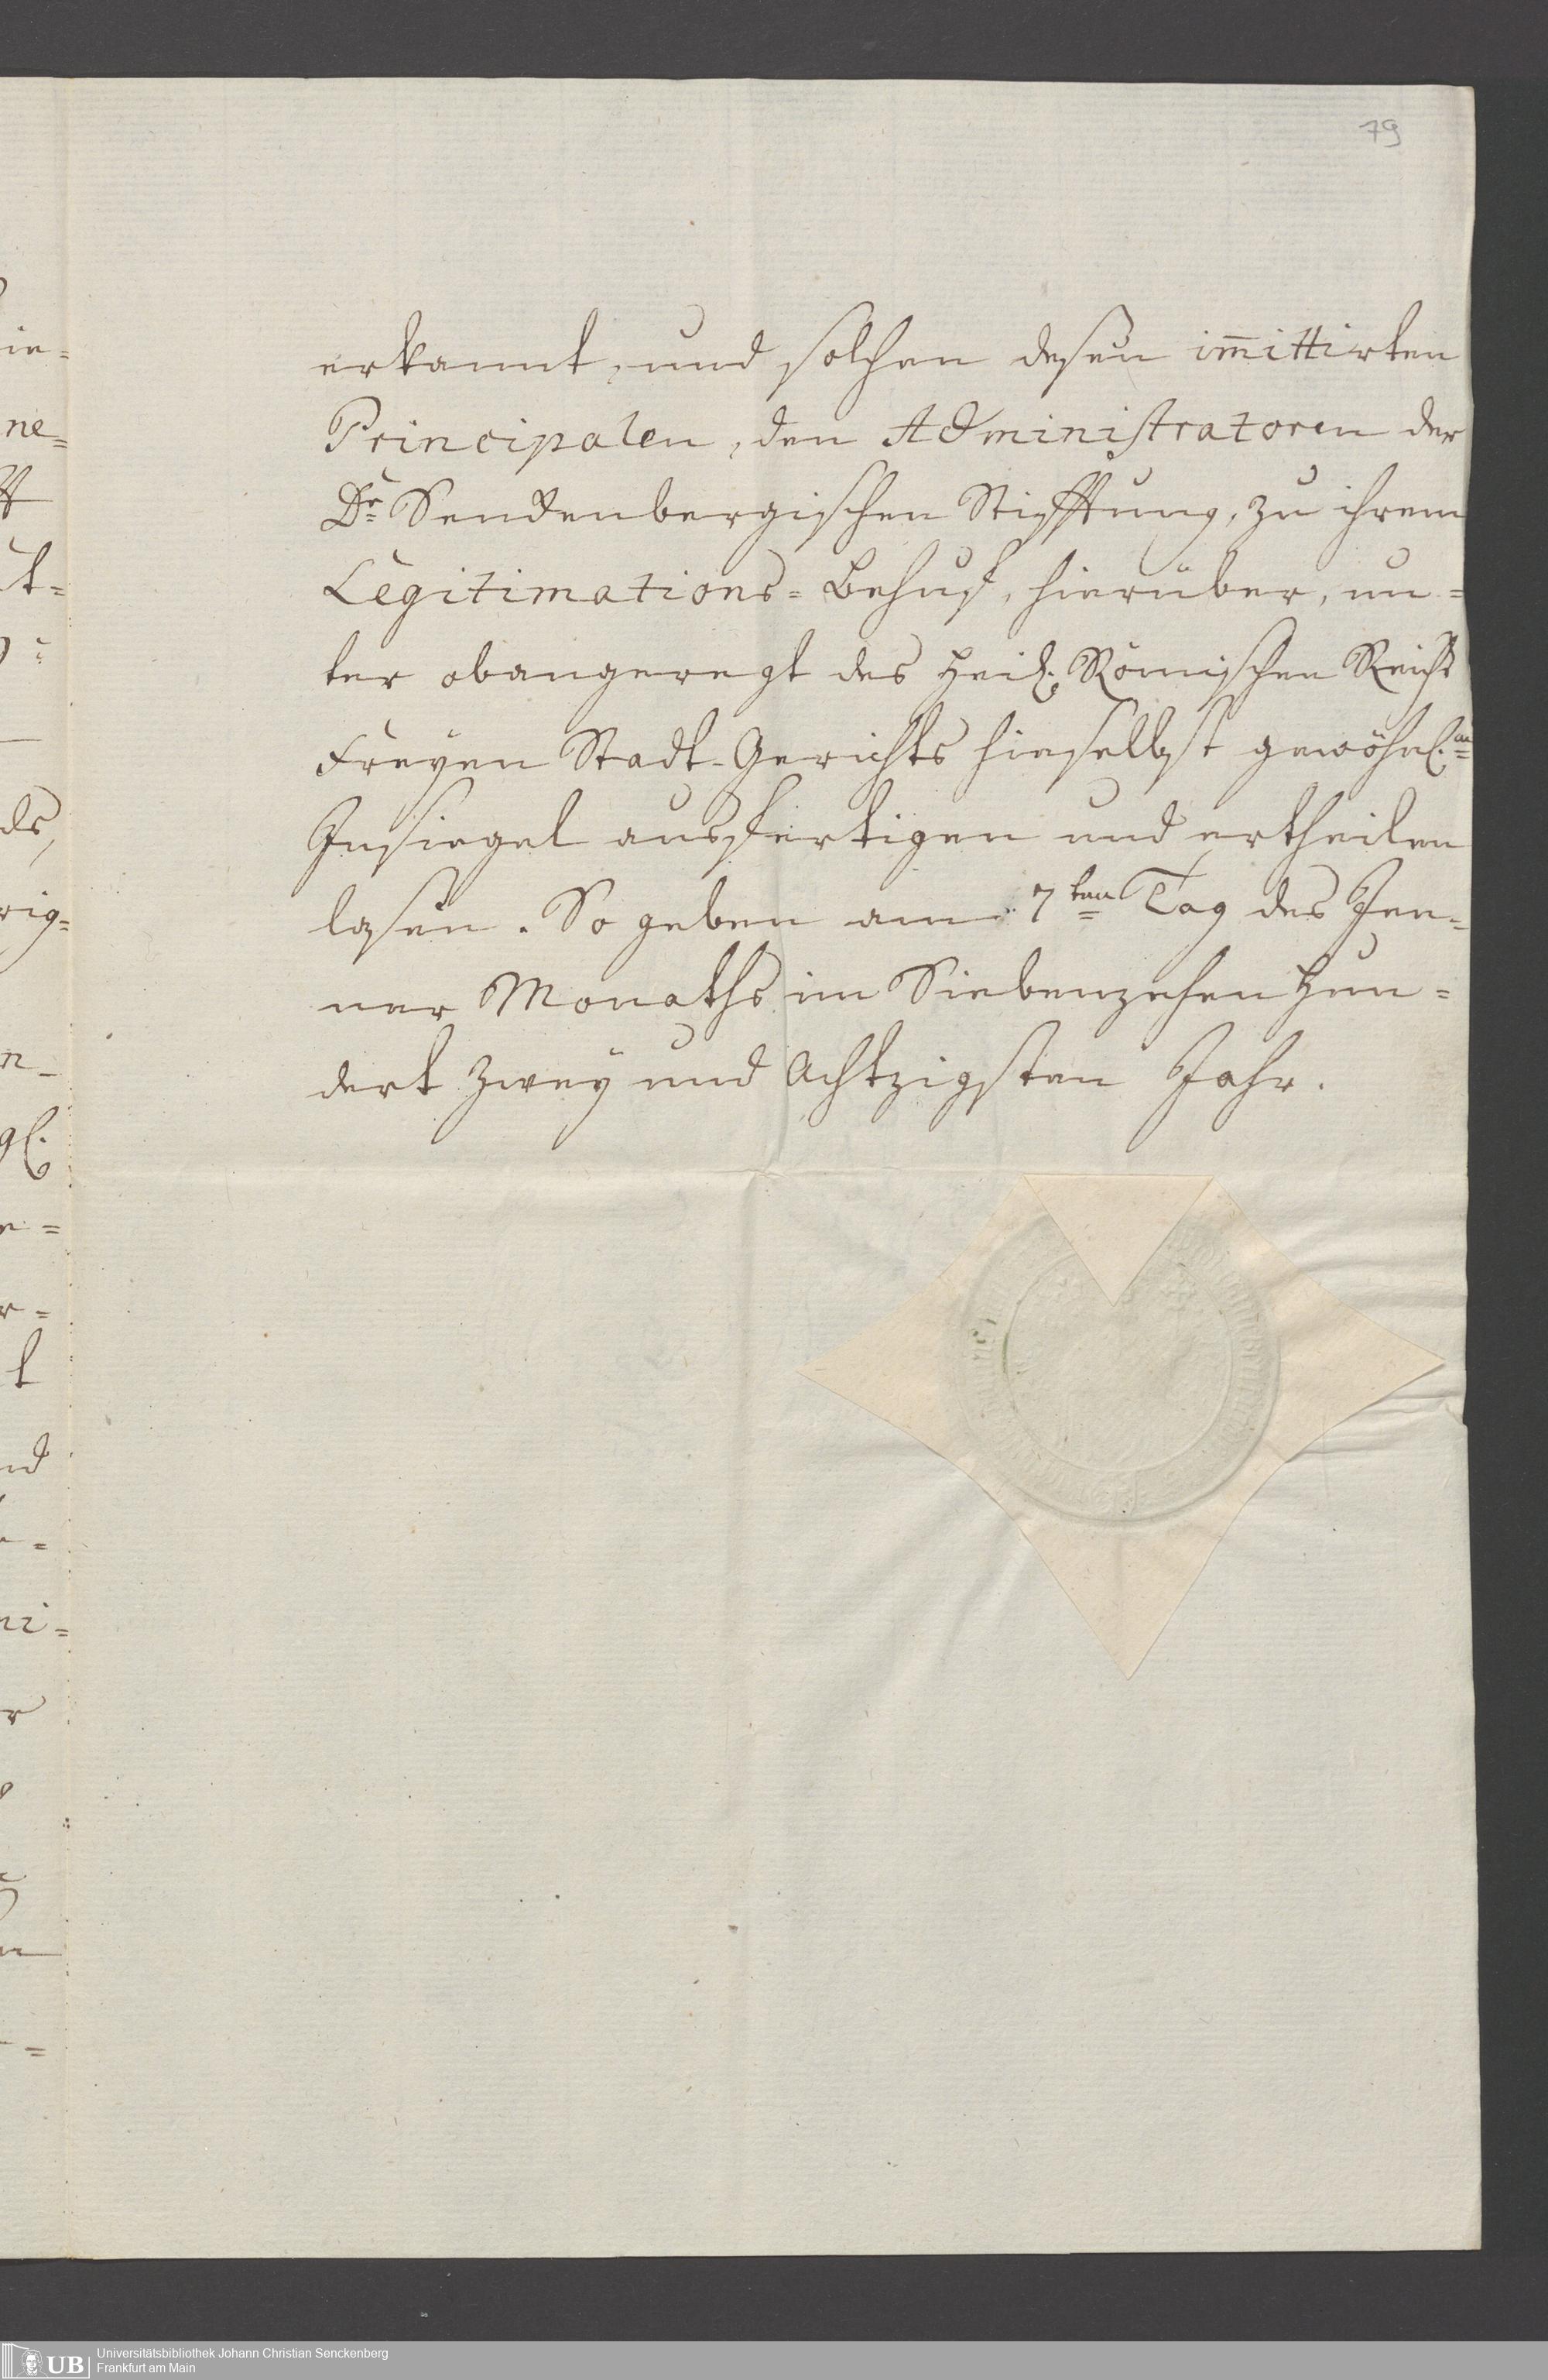 79
erkannt, und solchen deßen im̄ittirten
Principalen, den Administratoren der
Dr Senckenbergischen Stifftung, zu ihrem
Legitimations-Behuf, hierüber, un-
ter obangeregt des Heil. Römischen Reichs
Freyen Stadt-Gerichts hieselbst gewöhnl.m
Insiegel ausfertigen und ertheilen
laßen. So geben am 7ten Tag des Jen-
ner Monaths im Siebenzehen Hun-
dert Zwey und Achtzigsten Jahr.
UB
Universitätsbibliothek Johann Christian Senckenberg
Frankfurt am Main